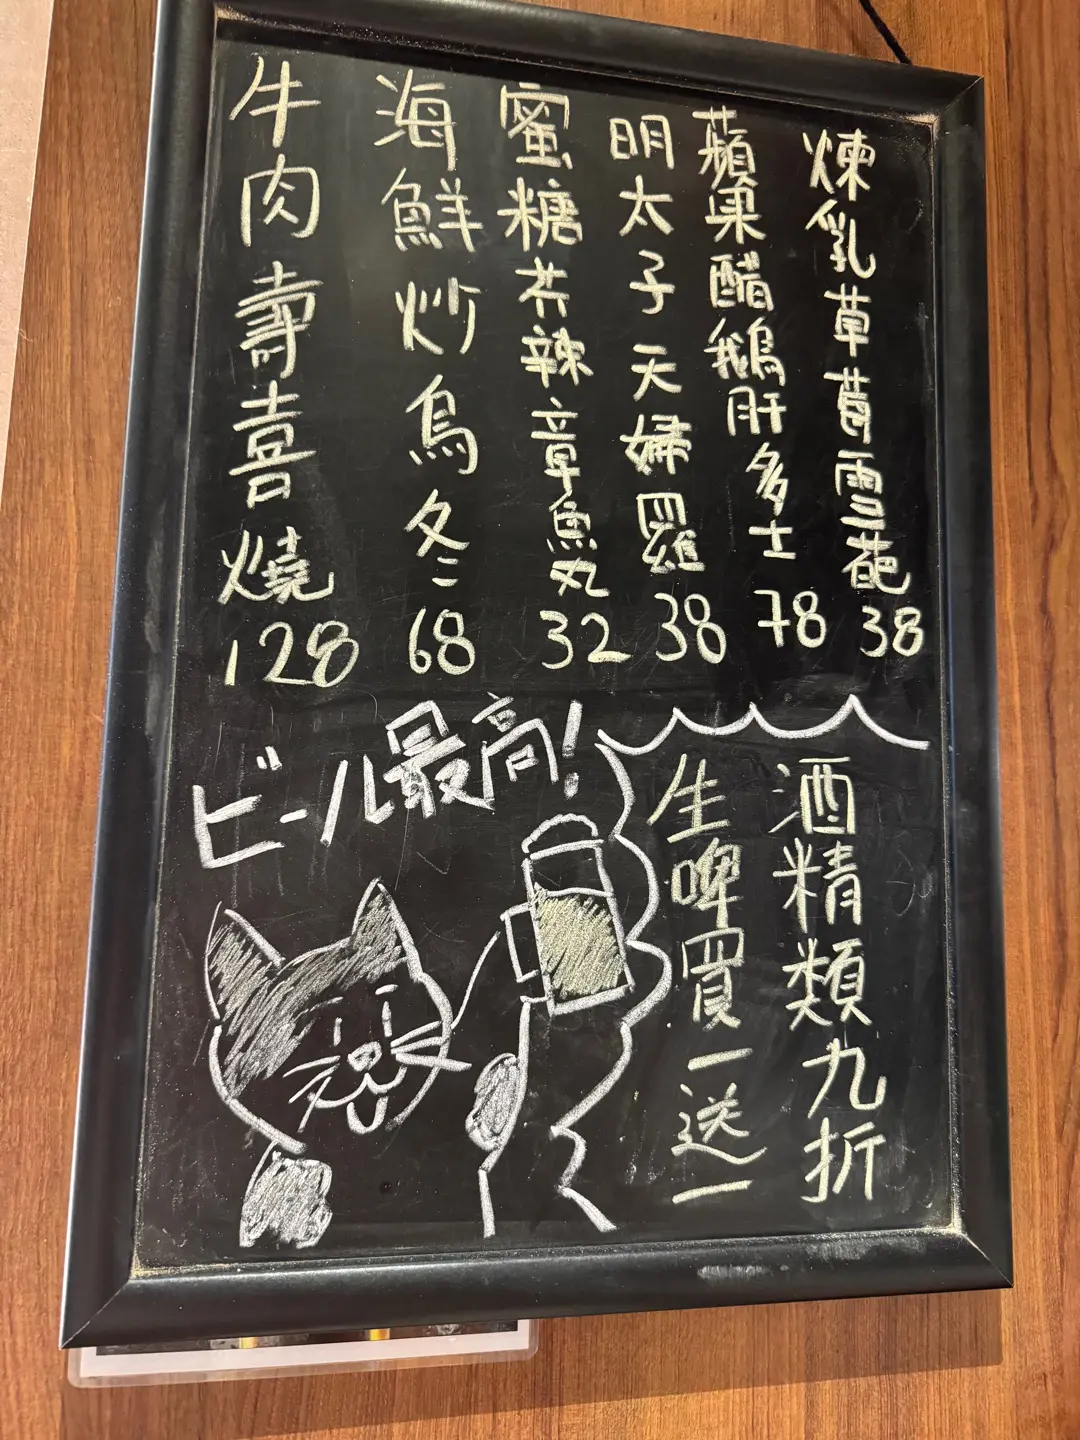 煉乳草莓雪葩 38
蘋果醋鵝肝多士 78
明太子天婦羅 38
蜜糖芥辣章魚丸 32
海鮮炒烏冬 68
牛肉壽喜燒 128
ビール最高!
酒精類九折
生啤買一送一